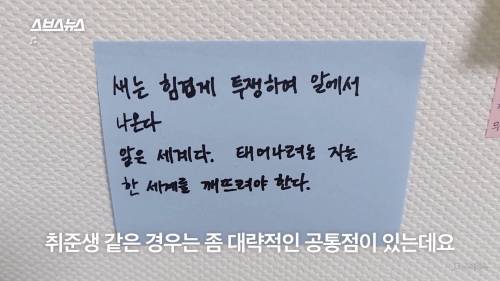 스브스뉴스
새는 힘겹게 투쟁하여 알에서
나온다
알은 세계다. 태어나려는 자는
한 세계를 깨뜨려야 한다.
취준생 같은 경우는 좀 대략적인 공통점이 있는데요